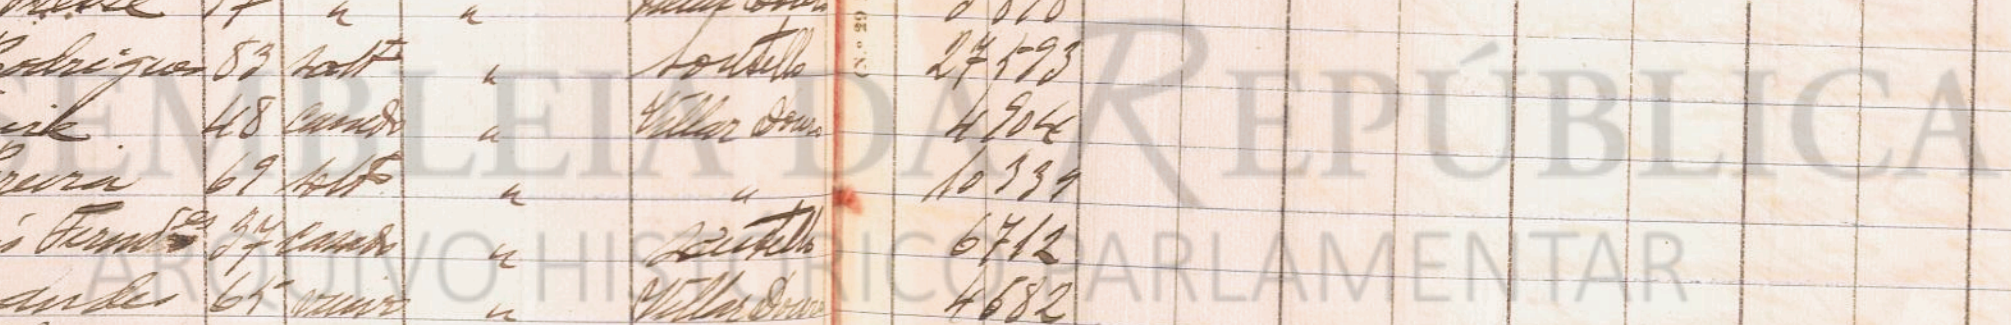 17 " "
Rodrigues 83 soltº " Soutello 27 593
48 casado " Villar Douro 4 904
reira 69 soltº " " 10 339
Fernes 37 casado " Soutello 6 712
andes 65 viuvo " Villar Douro 4 682
(N.º 29
ASSEMBLEIA DA REPÚBLICA
ARQUIVO HISTÓRICO PARLAMENTAR